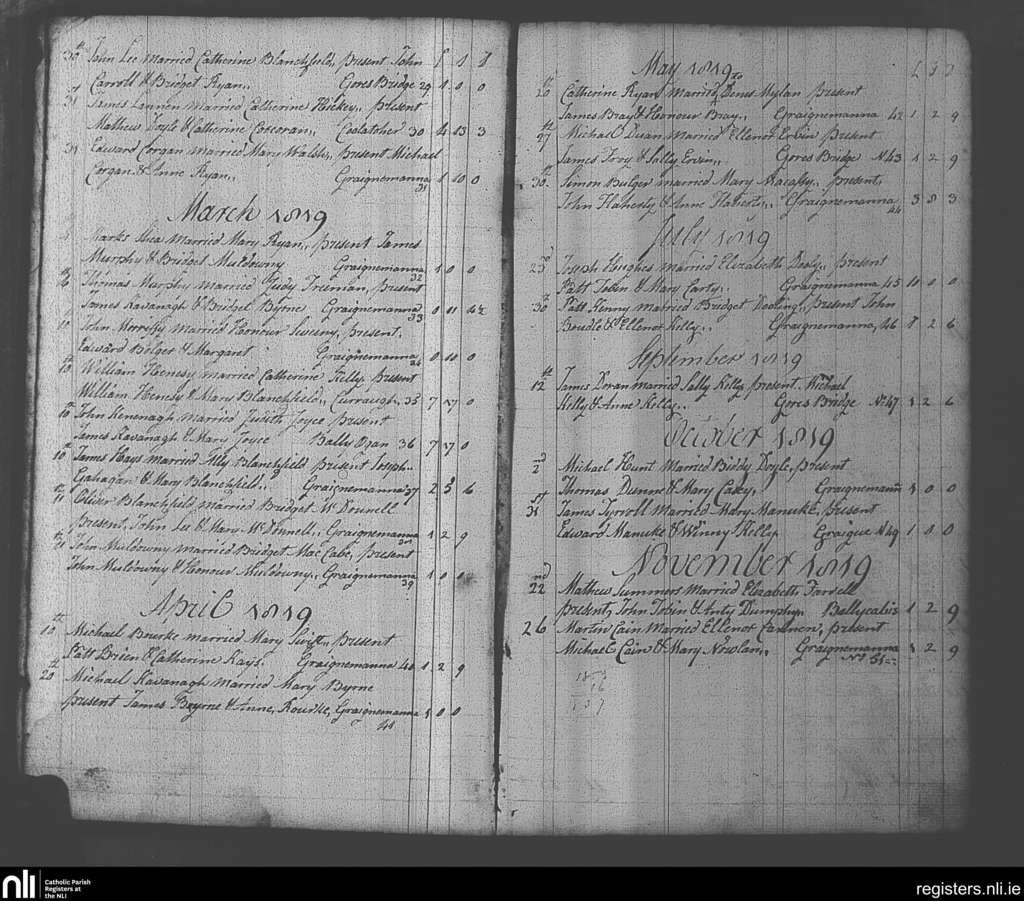 30th John Lee Married Catherine Blanchfield, Present John £ s d
Carroll & Bridget Ryan,, Gores Bridge 29 1 0 0
31st James Lannen Married Catherine Hickey,, present
Mathew Doyle & Catherine Corcoran,, Coolatcher 30 4 13 3
31 Edward Corgan married Mary Walsh,, Present Michael
Corgan & Anne Ryan,, Graignemanna 31 1 10 0
March 1819
Marks Shea Married Mary Ryan,, present James
Murphy & Bridget Muldowny Graignemanna 32 1 0 0
Thomas Murphy married Judy Freeman, present
James Kavanagh & Bridget Byrne Graignemanna 33 0 11
10 John Morrissy married Honour Sweeny, Present,
Edward Bolger & Margaret Graignemanna 34 0 10 0
10th William Henesy married Catherine Kelly, Present
William Henesy & Mary Blanchfield,, Curraugh, 35 7 0
10th John Kenenagh Married Judith Joyce present
James Kavanagh & Mary Joyce Bally Ogan 36 7 0
10th James Hays married Ally Blanchfield present Joseph
Gahagan & Mary Blanchfield,, Graignemanna 37 2 5 6
11th Oliver Blanchfield married Bridget Mc Donnell
present, John Lee & Mary Mc Donnell,, Graignemanna 1 2 9
21 John Muldowny married Bridget Mac Cabe, present
John Muldowny & Honour Muldowny,, Graignemanna 39 1 0 0
April 1819
10th Michael Bourke married Mary Swift,, present
Patt Brien & Catherine Hays. Graignemanna 40 1 2 9
20th Michael Kavanagh Married Mary Byrne
present James Beyrne & Anne, Rourke, Graignemanna 41 1 0 0
May 1819 £ s d
20th Catherine Ryan Married to Denis Nylan present
James Bray & Honour Bray,, Graignemanna 42 1 2 9
27th Michael Duan Married Ellenor Ervin present
James Tovy & Sally Ervin,, Gores Bridge No 43 1 2 9
30th Simon Bulger married Mary Macassy,, present,
John Flaherty & Anne Flaherty,, Graignemanna 44 3 8 3
July 1819
23rd Joseph Hughes married Elizabeth Dealy,, present
Patt Tobin & Mary Corty,, Graignemanna 45 10 0 0
30th Patt Kenny married Bridget Dooling, present John
Boudle & Ellenor Kelly,, Graignemanna, 46 8 2 6
September 1819
12th James Doran married Sally Kelly present. Michael
Kelly & Anne Kelly,, Gores Bridge No 47 1 2 6
October 1819
2nd Michael Hunt Married Biddy Doyle, present
Thomas Dunne & Mary Casey, Graignemann 1 0 0
31st James Tyrroll Married Mary Manuke, Present
Edward Manuke & Winny Kelly Graigue No 49 1 0 0
November 1819
22nd Mathew Summers Married Elizabeth Farrell
present, John Tobin & Anty Dunphy,, Ballycabis 1 2 9
26 Martin Cain Married Ellenor Cannen, present
Michael Cain & Mary Nowlan,, Graignemanna 1 2 9
No 51
nli
Catholic Parish
Registers at
the NLI
registers.nli.ie